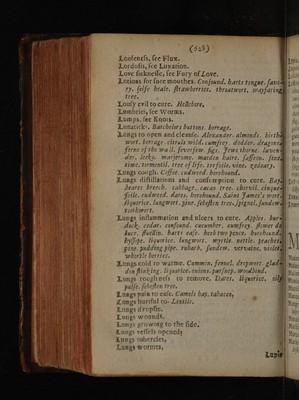 (628)
Loosenesse, see Flux.
Lordosis, see Luxation.
Love sicknesse, see Fury of Love.
Lotions for sore mouthes. Confound, harts tongue, sani-
cy, selfe heale, strawberries, throatwort, wayfaring
tree.
Lousy evil to cure. Hellebore.
Lumbrici, see Worms.
Lumps, see Knots.
Lunaticks. Batchelors buttons, borrage.
Lungs to open and cleanse. Alexander, almonds, birth-
wort, borrage, citruls wild, cumfrey, dodder, dragons,
ferne of the wall, feverfew, figs, Jews thorne, laven-
der, leeks, marjerome, maiden haire, saffron, sene,
time, tormentil, tree of life, trefoile, vine, zedoary.
Lungs cough. Coffee, cudweed, horehound.
Lungs distillations and consumption to cure. Bay,
beares breech, cabbage, cacao tree, chervil, cinque-
foile, cudweed, dates, horehound, Saint James's wort,
liquorice, lungwort, pine, sebesten tree, spignel, sundew,
toothwort.
Lungs inflammation and ulcers to cure. Apples, bur-
dock, cedar, confound, cucumber, cumfrey, flower de
luce, fluellin, harts ease, herb two pence, horehound,
hyssope, liquorice, lungwort, myrtle, nettle, peaches,
pine, pudding pipe, rubarb, sundew, vervaine, violet,
whortle berries.
Lungs cold to warme. Cummin, fennel, dropwort, glad-
don stinking, liquorice, onions, parsnep, woodbind.
Lungs roughness to remove. Dates, liquorice, oily
pulse, sebesten tree.
Lungs pain to ease. Camels hay, tabacco,
Lungs hurtful to. Lentils.
Lungs dropsie.
Lungs wounds.
Lungs growing to the side.
Lungs vessels opened;
Lungs tubercles,
Lungs wormes,